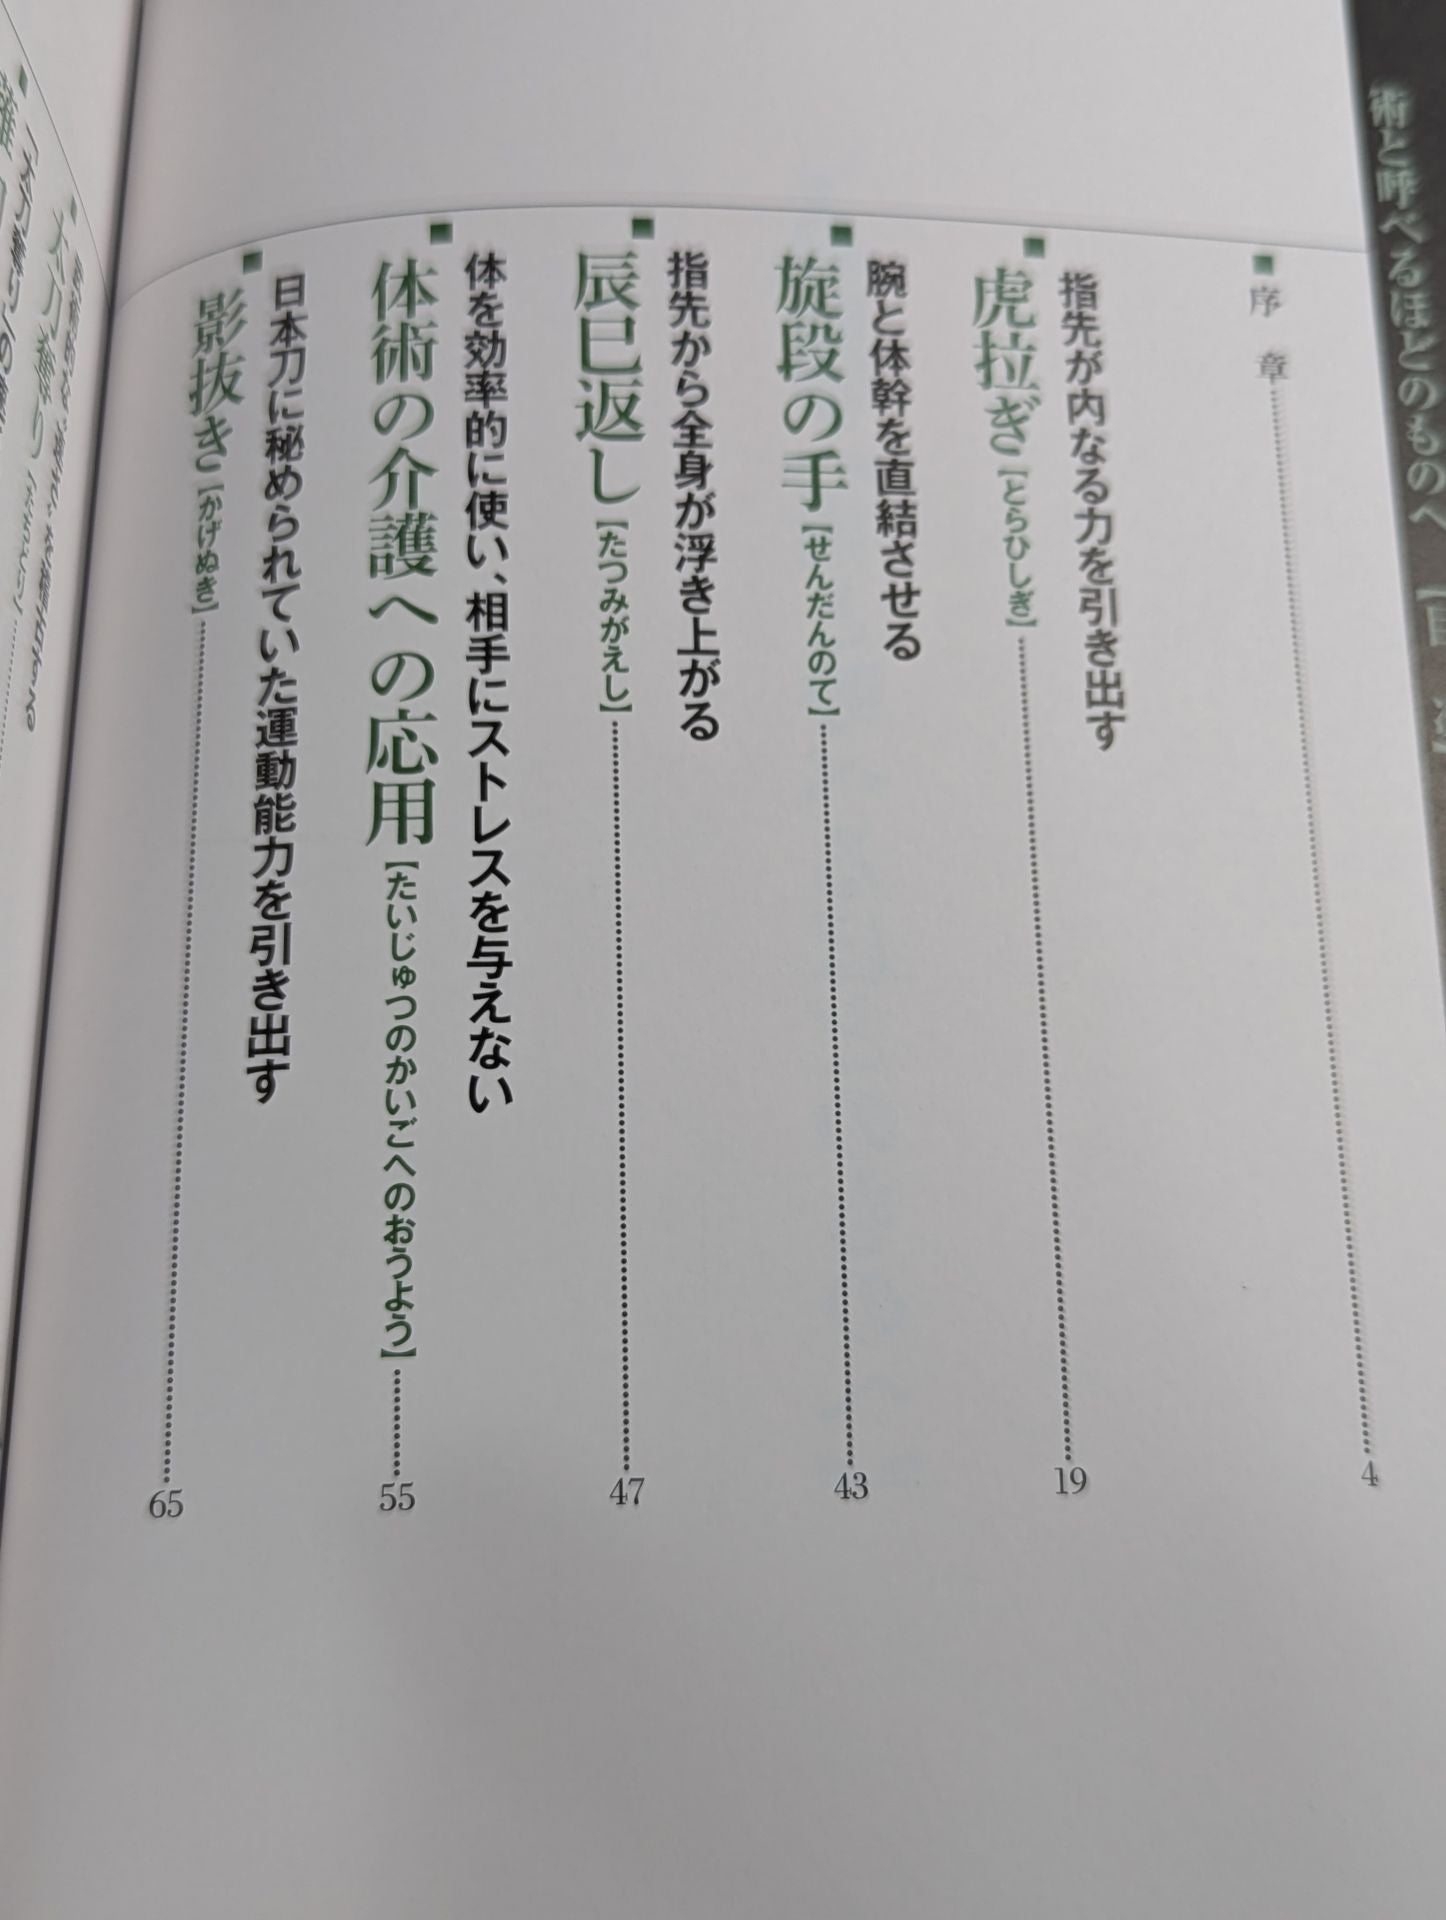 術と呼べるほどのものへ
■序　章 4
指先が内なる力を引き出す
■虎拉ぎ【とらひしぎ】 19
腕と体幹を直結させる
■旋段の手【せんだんのて】 43
指先から全身が浮き上がる
■辰巳返し【たつみがえし】 47
体を効率的に使い、相手にストレスを与えない
■体術の介護への応用【たいじゅつのかいごへのおうよう】 55
日本刀に秘められていた運動能力を引き出す
■影抜き【かげぬき】 65